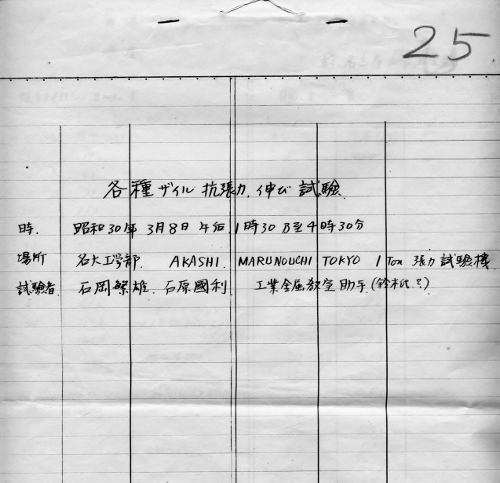 25.
各種ザイル抗張力、伸び試験
時. 昭和30年 3月8日 午后 1時30乃至4時30分
場所 名大工学部. AKASHI. MARUNOUCHI TOKYO 1 Ton 張力試験機
試験者 石岡繁雄. 石原國利 工業金属教室助手(鈴木氏?)